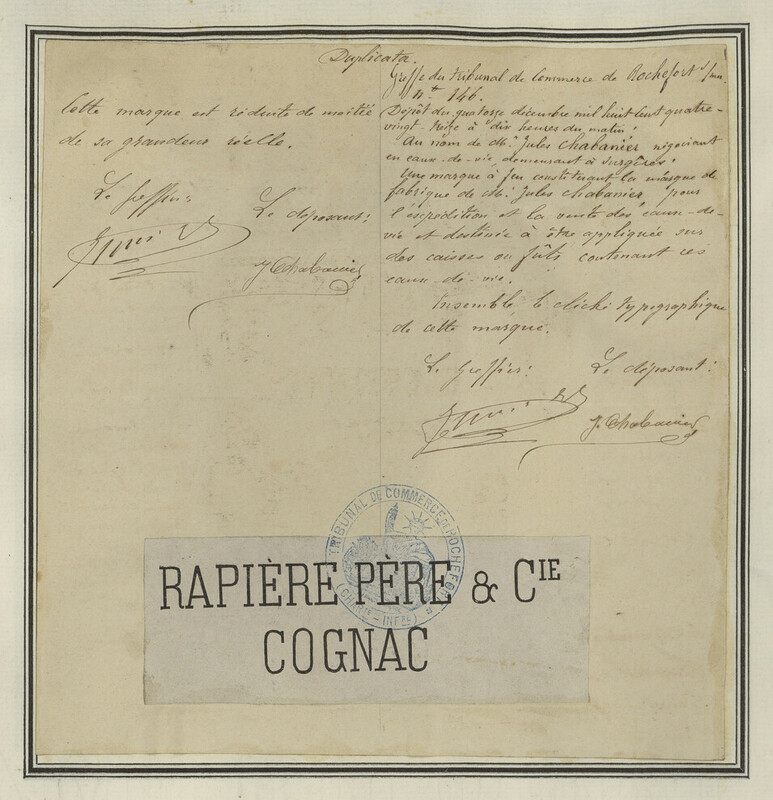 Duplicata.
Cette marque est réduite de moitié
de sa grandeur réelle.
Le greffier:
Le déposant:
J. Chabanier
Greffe du tribunal de Commerce de Rochefort s/mer
Nº 146.
Dépôt du quatorze décembre mil huit cent quatre-
vingt-treize à dix heures du matin;
Au nom de Mr. Jules Chabanier négociant
en eaux-de-vie, demeurant à Surgères;
Une marque à feu constituant la marque de
fabrique de Mr. Jules Chabanier, pour
l'expédition et la vente des eaux-de-
vie et destinée à être appliquée sur
des caisses ou fûts contenant ces
eaux-de-vie.
Ensemble le cliché typographique
de cette marque.
Le greffier:
Le déposant:
J. Chabanier
TRIBUNAL DE COMMERCE DE ROCHEFORT
(CHARTE-INFRE)
RAPIÈRE PÈRE & CIE
COGNAC